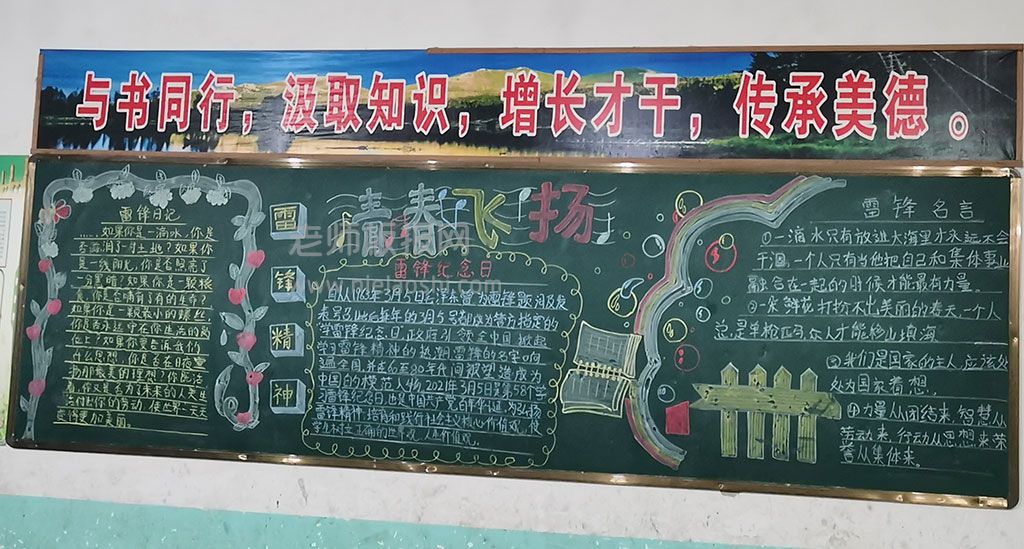 与书同行，汲取知识，增长才干，传承美德。
雷锋日记
……如果你是一滴水，你是
否滋润了一寸土地？如果你
是一线阳光，你是否照亮了
一分黑暗？如果你是一颗粮
食，你是否哺育了有的生命？
如果你是一颗最小的螺丝
钉，你是否永远守在你生活的岗
位上？如果你要告诉我们
什么思想，你是否在日夜宣
扬那最美的理想？你既活
着，你又是否为未来的人类生
活付出你的劳动，使世界一天天
变得更加美丽。
雷
锋
精
神
青春飞扬
老师板报网
雷锋纪念日
自从1963年3月5日毛泽东曾为雷锋题词及发
表至此后每年的3月5号都成为官方指定的
学雷锋纪念日，政府引领全中国掀起
学习雷锋精神的热潮雷锋的名字响
遍全国，并成为至80年代间被塑造成为
中国的模范人物，2021年3月5日是第58个学
习雷锋纪念日也是中国共产党百年华诞，为弘扬
雷锋精神，培育和践行社会主义核心价值观，使
学生树立正确的世界观，人生价值观。
雷锋名言
①一滴水只有放进大海里才永远不会
干涸，一个人只有当他把自己和集体事业
融合在一起的时候才能最有力量。
②一朵鲜花打扮不出美丽的春天，一个人
总是单枪匹马众人才能移山填海
③我们是国家的主人，应该处
处为国家着想。
④力量从团结来，智慧从
劳动来，行动从思想来荣
誉从集体来。